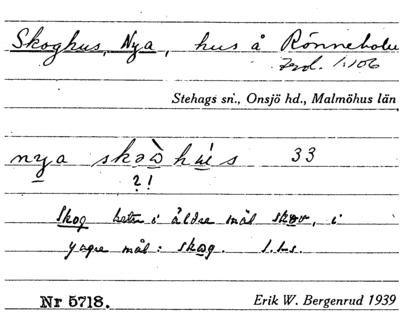 Skoghus, Nya, hus å Rönneholm
Jord. 1:106
Stehags sn., Onsjö hd., Malmöhus län
nya skoshús 33
?!
Skog heter i äldre mål skov, i
yngre mål: skog. s.s.
Nr 5718. Erik W. Bergenrud 1939